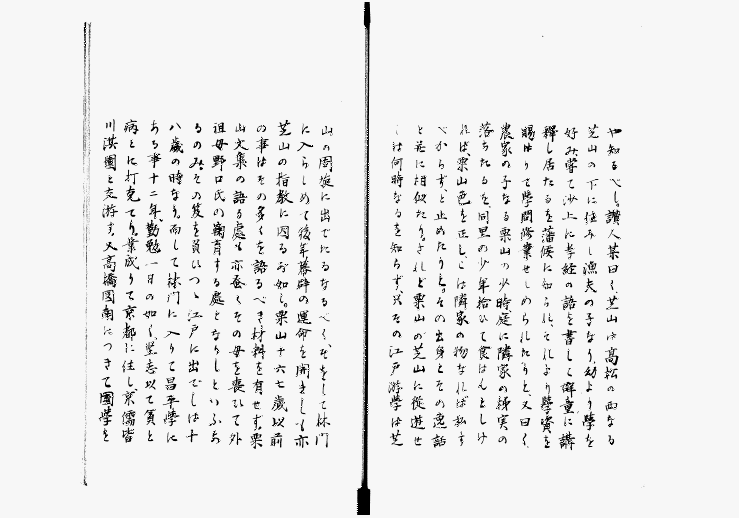 や知るべし。讃人某曰く、芝山は高松の西なる
芝山の下に住みし漁夫の子なり、幼より學を
好み嘗て沙上に孝經の語を書して群童に講
釋し居たるを藩候に知られ、それより學資を
賜はりて學問修業せしめられたりと、又曰く、
農家の子なる栗山の少時庭に隣家の梯実の
落ちたるを同里の少年拾ひて食はんとしけ
れば、栗山色を正し、こは隣家の物なれば私す
べからず、と止めたりと。その出身とその逸話
と甚に相似たり。されど栗山の芝山に從遊せ
しは何時なるを知らず、只その江戸游學は芝
山の周旋に出でたるなるべく、そをして林門
に入らしめて後年幕府の運命を開きしも亦
芝山の指教に因るが如し。栗山十六七歳以前
の事はその多くを語るべき材料を有せず。栗
山文集の語る處も亦蚤くその母を喪ひて外
祖母野口氏の鞠育する處となりしといふが
るのみ。その笈を負ひつゝ江戸に出でしは十
八歳の時なり。而して林門に入りて昌平學に
ある事十二年、勤勉一日の如く、堅志以て貧と
病とに打克てり。業成りて京都に住し、京儒皆
川淇園と交游す。又高橋図南につきて國學を